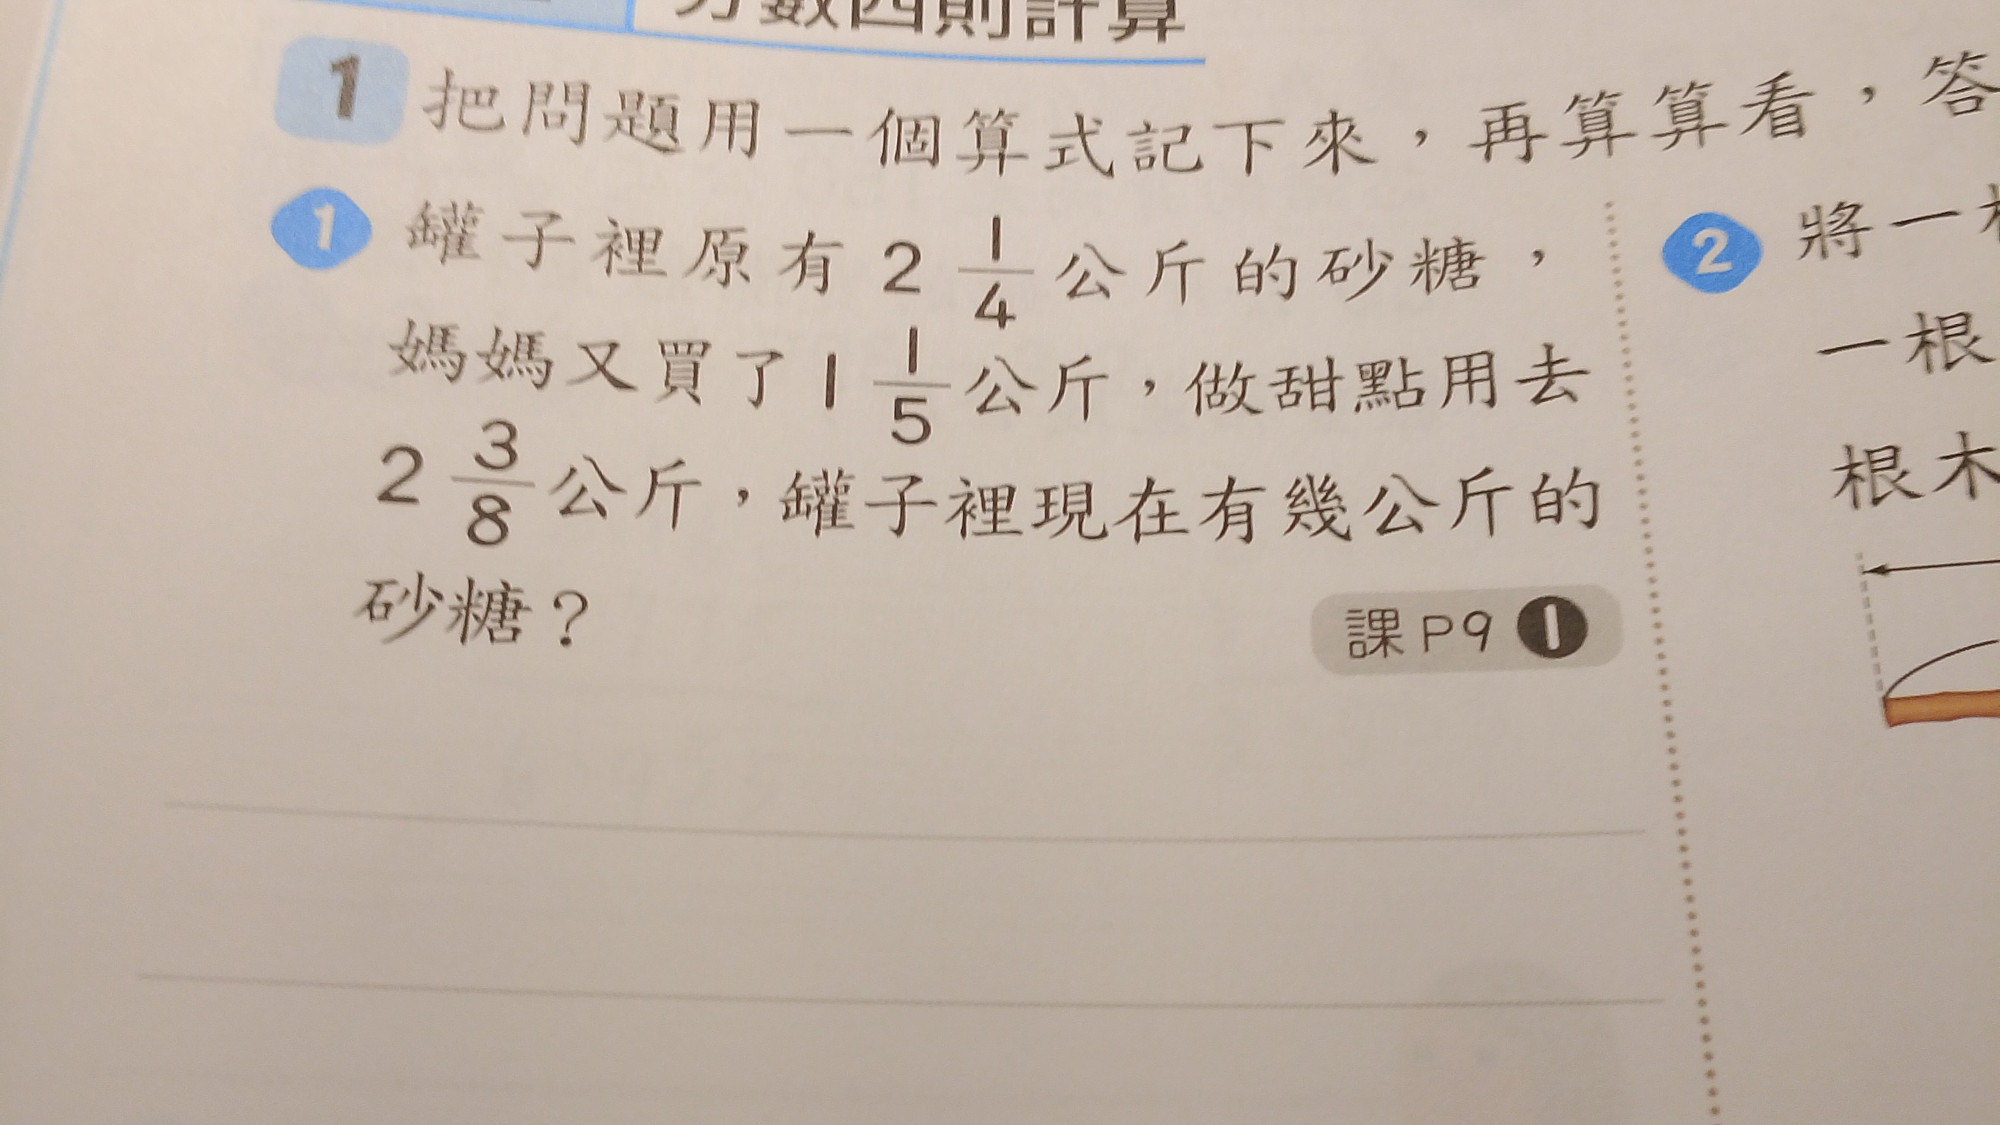 分數四則計算
1 把問題用一個算式記下來，再算算看，答
1 罐子裡原有 2 1/4 公斤的砂糖，
媽媽又買了 1 1/5 公斤，做甜點用去
2 3/8 公斤，罐子裡現在有幾公斤的
砂糖？
課 P9 1
2 將一
一根
根木